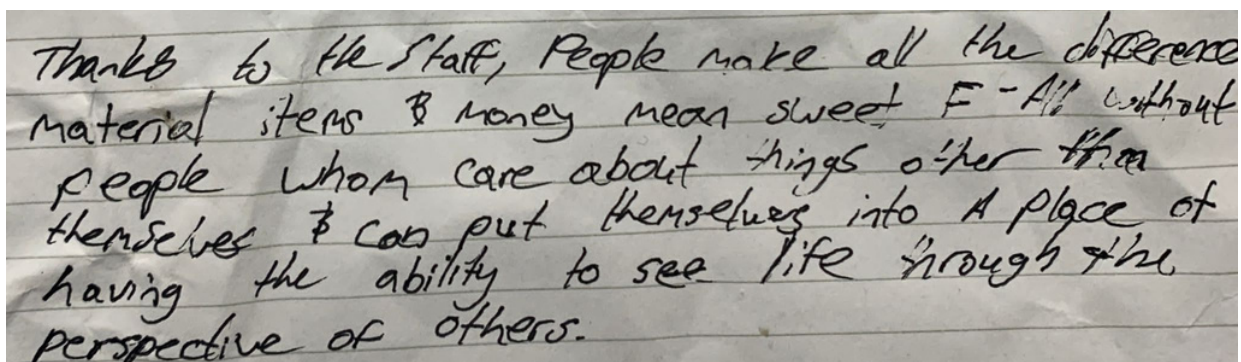 Thanks to the Staff, People make all the difference
material items & money mean sweet F-All without
people whom care about things other than
themselves & can put themselves into A place of
having the ability to see life through the
perspective of others.